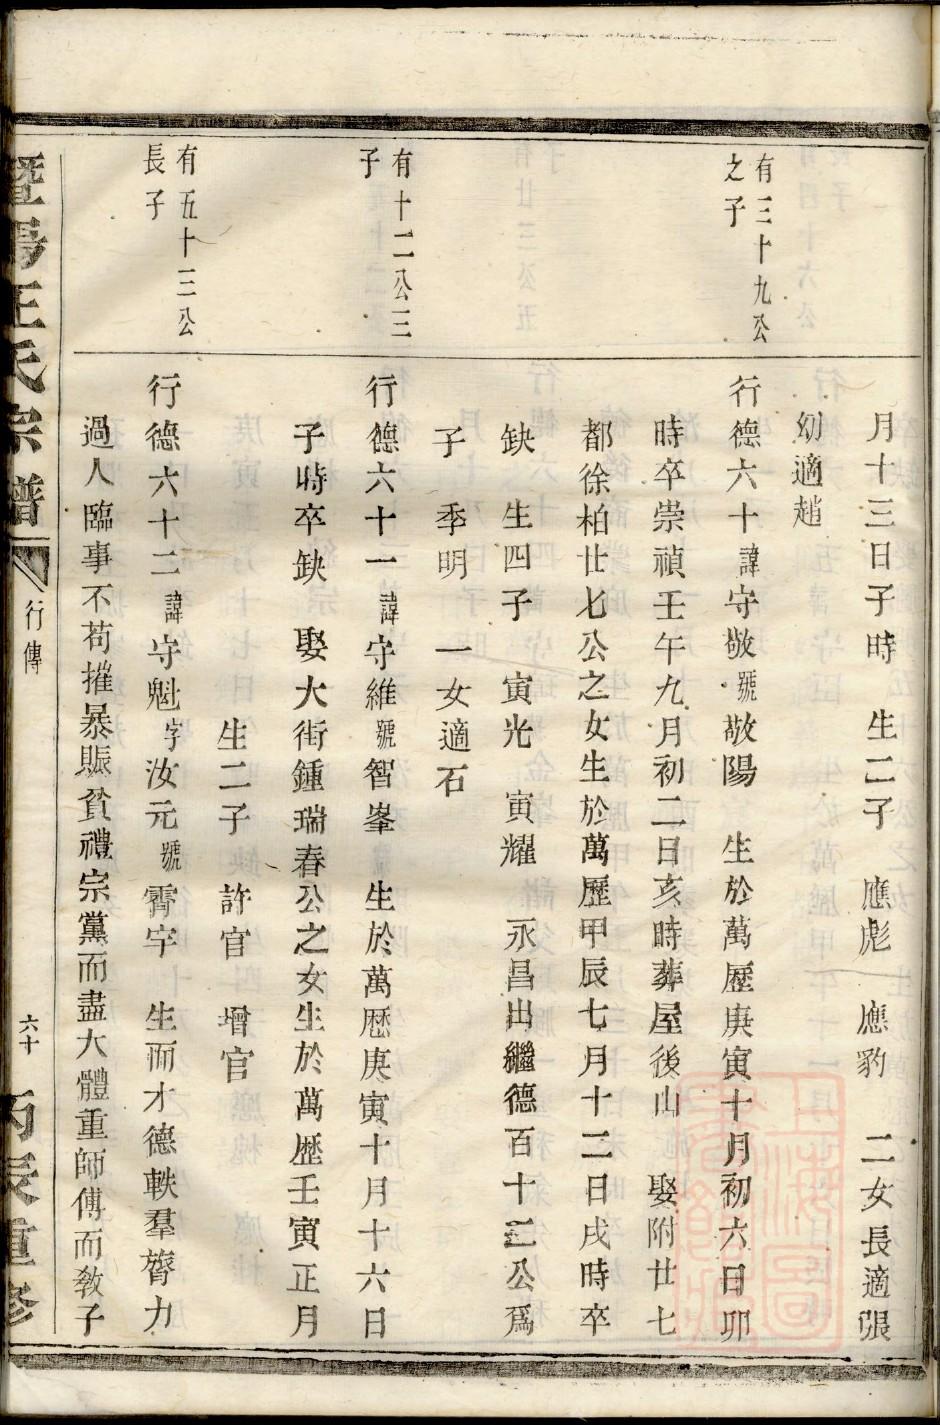 月十三日子時 生二子 應彪 應豹 二女長適張
幼適趙
有三十九公
之子
行德六十諱守敬號敬陽 生於萬歷庚寅十月初六日卯
時卒崇禎壬午九月初二日亥時葬屋後山 娶附廿七
都徐柏廿七公之女生於萬歷甲辰七月十二日戌時卒
缺 生四子 寅光 寅耀 永昌出繼德百十三公爲
子 季明 一女適石
有十二公三
子
行德六十一諱守維號智峯 生於萬歷庚寅十月十六日
子時卒缺 娶大街鍾瑞春公之女生於萬歷壬寅正月
生二子 許官 增官
有五十三公
長子
行德六十二諱守魁字汝元號霽宇 生而才德軼羣膂力
過人臨事不苟摧暴賑貧禮宗黨而盡大體重師傅而教子
暨陽王氏宗譜 行傳 六十 丙辰重修